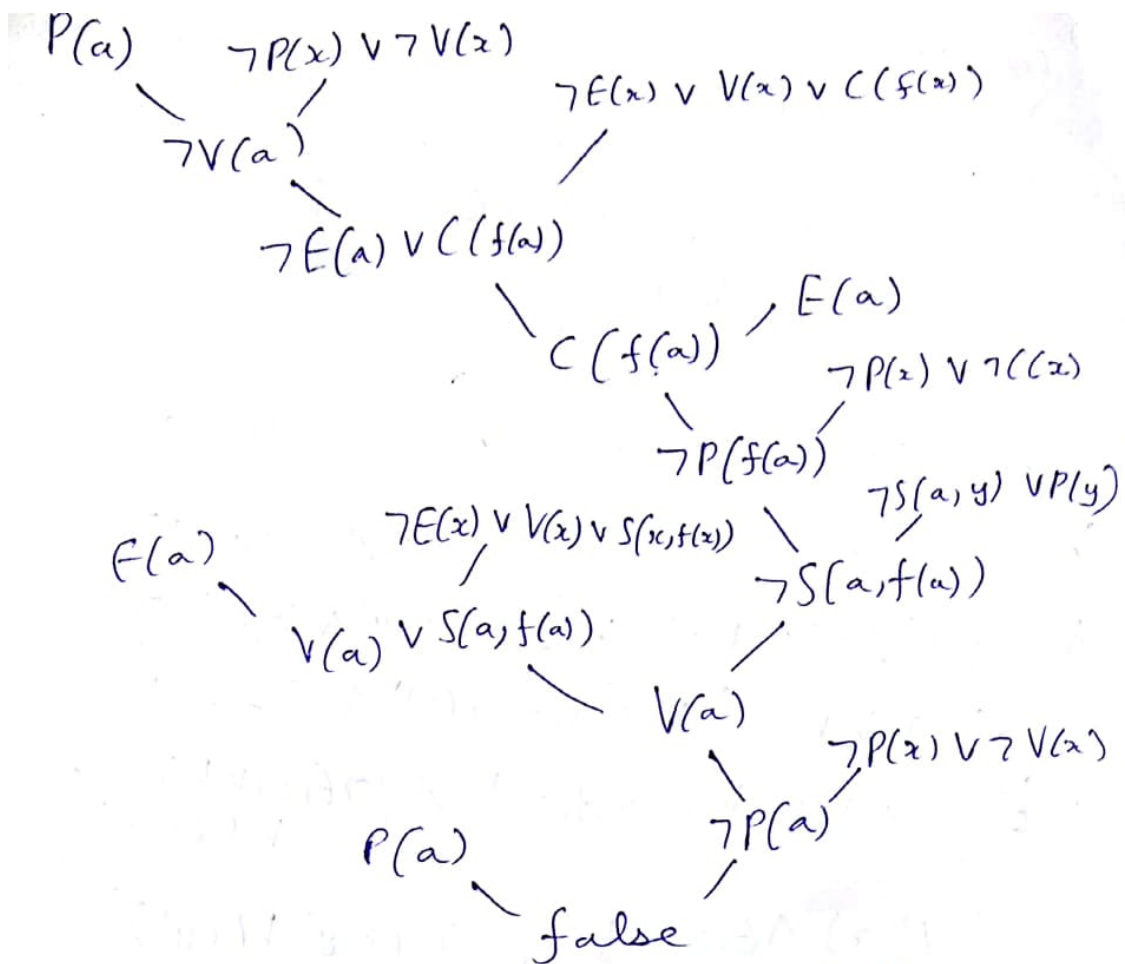 P(a) ¬P(x) ∨ ¬V(x)
¬E(x) ∨ V(x) ∨ C(f(x))
¬V(a)
¬E(a) ∨ C(f(a))
E(a)
C(f(a))
¬P(x) ∨ ¬C(x)
¬P(f(a))
¬S(a,y) ∨P(y)
¬E(x) ∨ V(x) ∨ S(x,f(x))
E(a)
¬S(a,f(a))
V(a) ∨ S(a,f(a))
V(a)
¬P(x) ∨ ¬V(x)
¬P(a)
P(a)
false